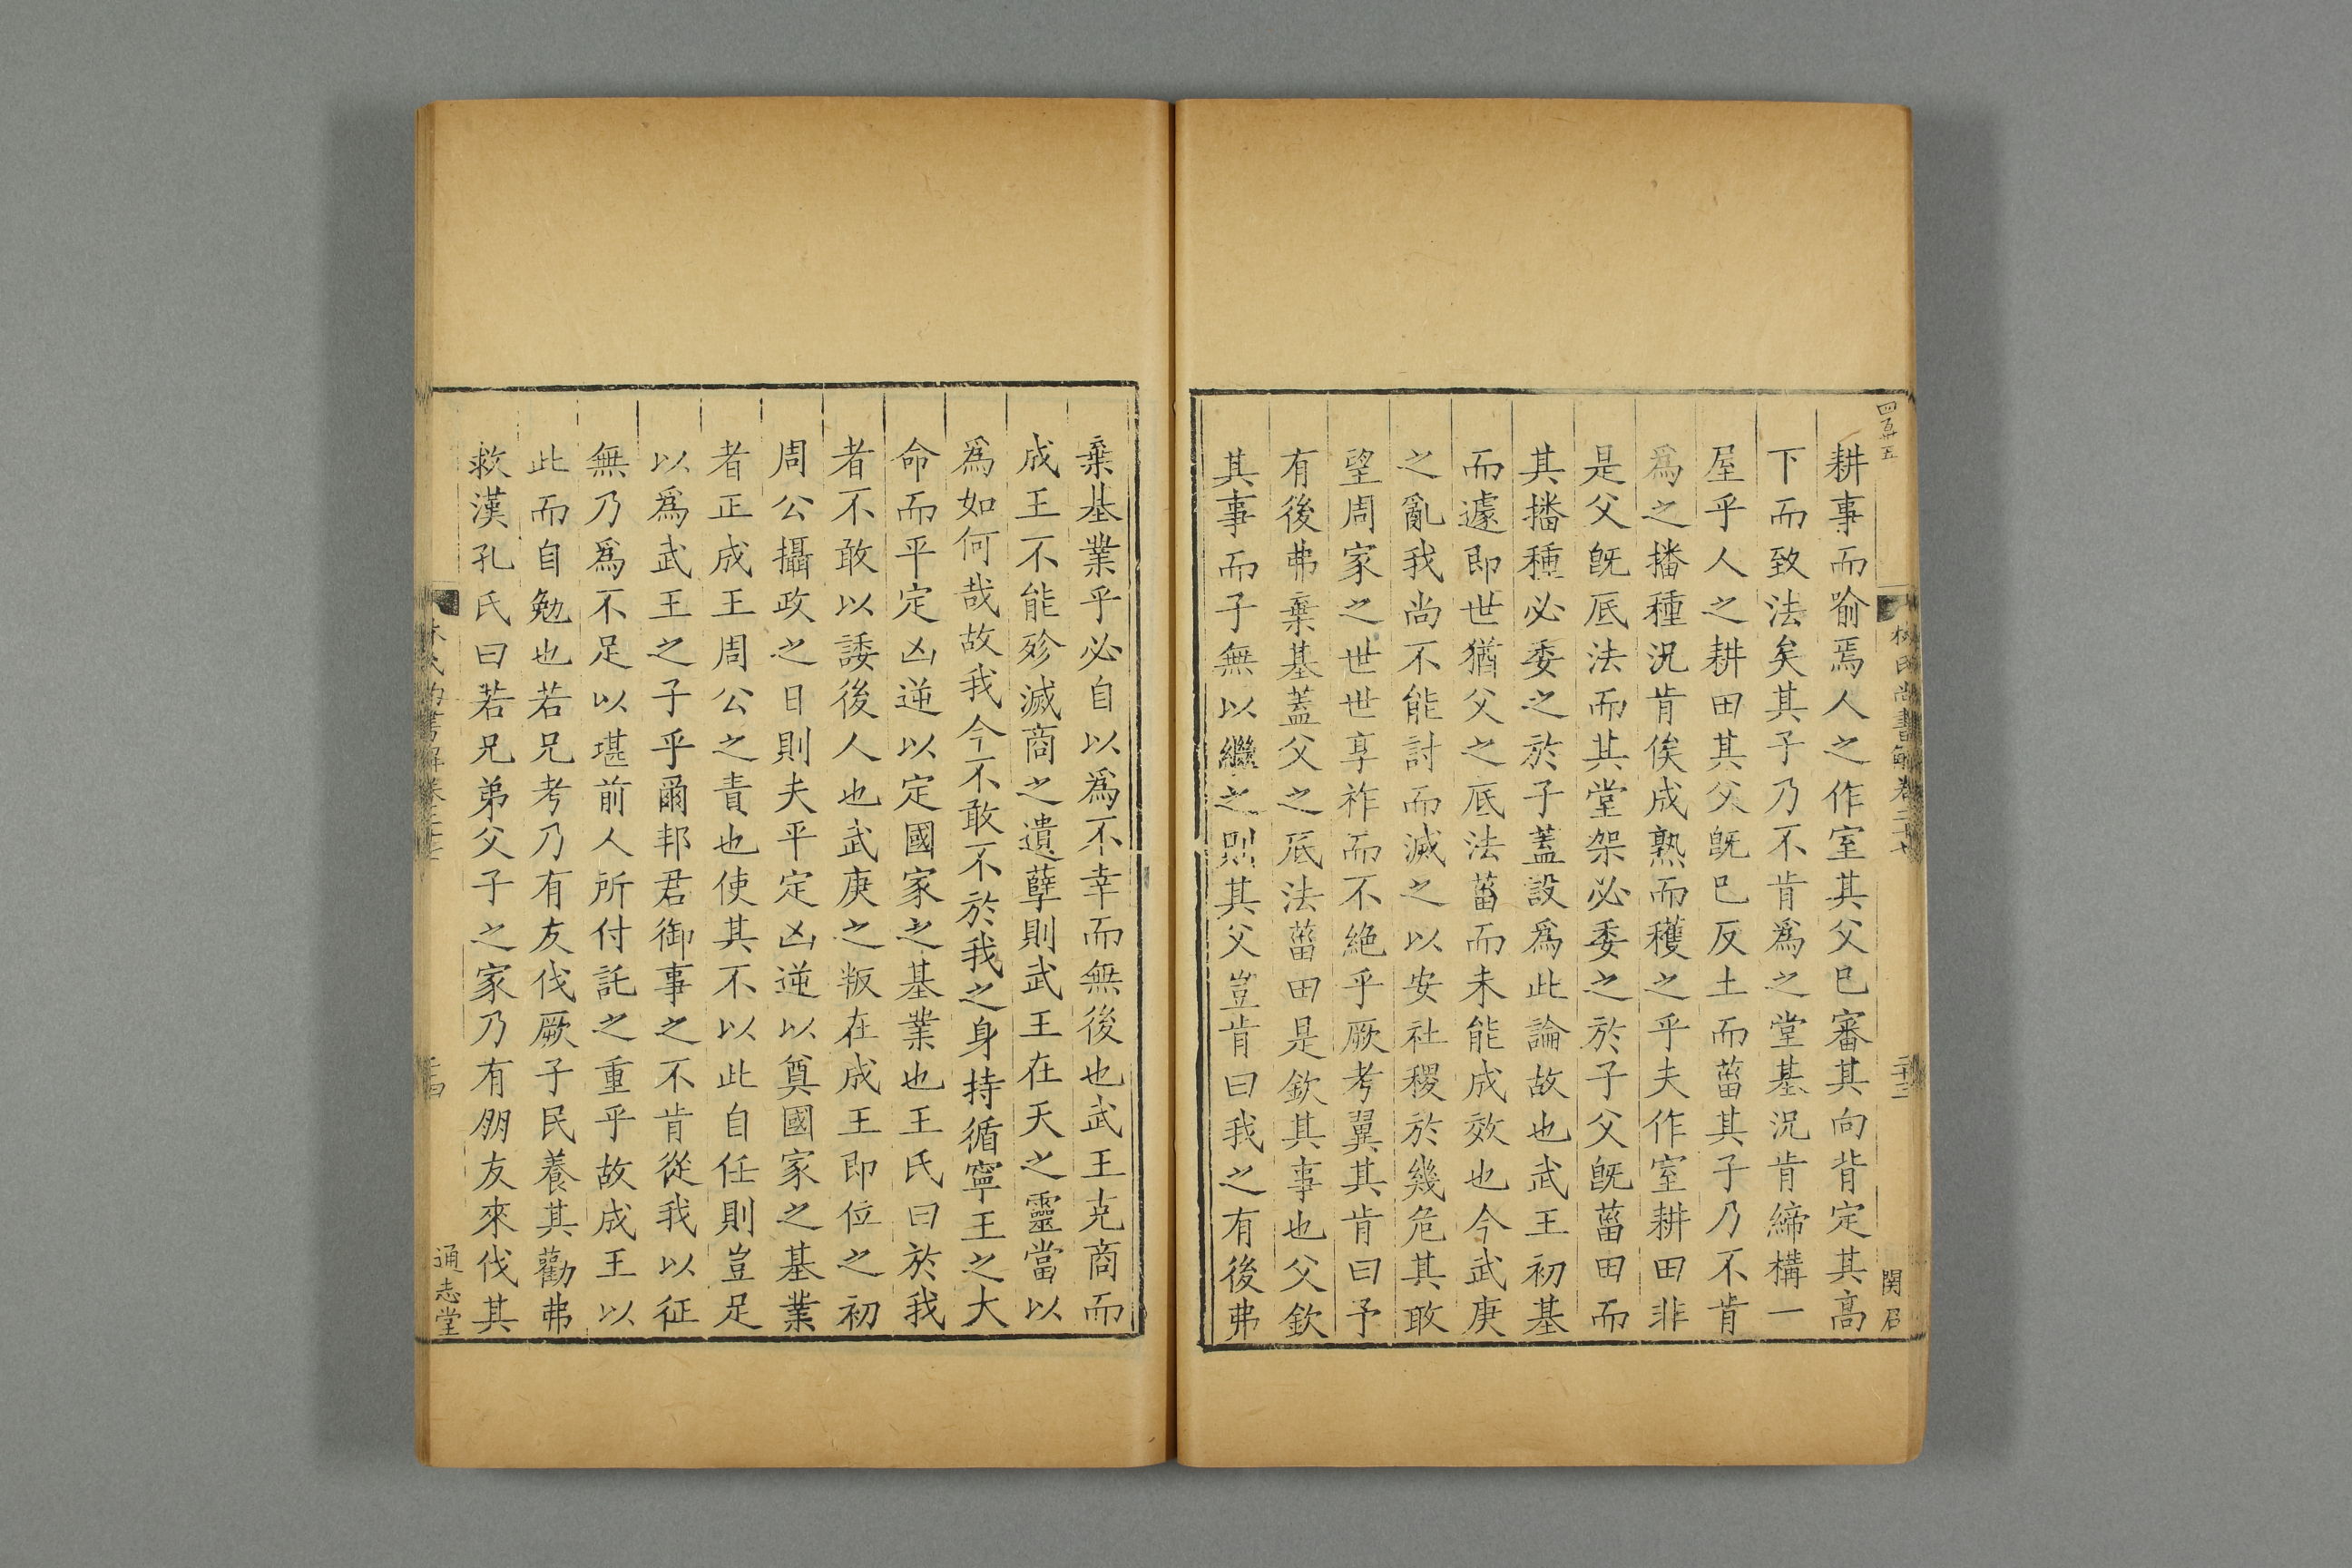 耕事而喻焉人之作室其父已審其向背定其高
下而致法矣其子乃不肯爲之堂基況肯締構一
屋乎人之耕田其父旣已反土而菑其子乃不肯
爲之播種況肯俟成熟而穫之乎夫作室耕田非
是父旣厎法而其堂架必委之於子父旣菑田而
其播種必委之於子蓋設爲此論故也武王初基
而遽即世猶父之厎法菑而未能成效也今武庚
之亂我尚不能討而滅之以安社稷於幾危其敢
望周家之世世享祚而不絶乎厥考翼其肯曰予
有後弗棄基蓋父之厎法菑田是欽其事也父欽
其事而子無以繼之則其父豈肯曰我之有後弗
棄基業乎必自以爲不幸而無後也武王克商而
成王不能殄滅商之遺孽則武王在天之靈當以
爲如何哉故我今不敢不於我之身持循寧王之大
命而平定凶逆以定國家之基業也王氏曰於我
者不敢以諉後人也武庚之叛在成王即位之初
周公攝政之日則夫平定凶逆以奠國家之基業
者正成王周公之責也使其不以此自任則豈足
以爲武王之子乎爾邦君御事之不肯從我以征
無乃爲不足以堪前人所付託之重乎故成王以
此而自勉也若兄考乃有友伐厥子民養其勸弗
救漢孔氏曰若兄弟父子之家乃有朋友來伐其
通志堂